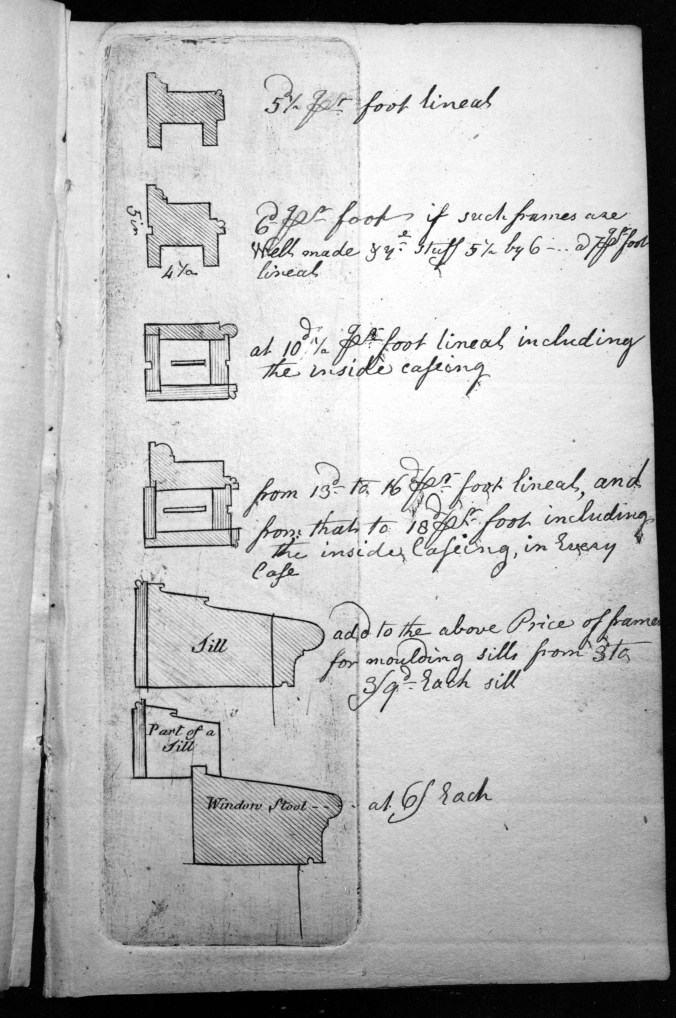 5d½ pr foot lineal
6d pr foot if such frames are
5 in
Well made & ye Stuff 5½ by 6 - - - a 7d pr foot
4½
lineal
at 10d½ pr foot lineal including
the inside caseing
from 13d to 16d pr foot lineal, and
from that to 18d pr foot including
the inside Caseing, in Every
Case
Sill
add to the above Price of frames
for moulding sills from 3 to
3/9d Each sill
Part of a
Sill
Window Stool - - - - at 6s Each